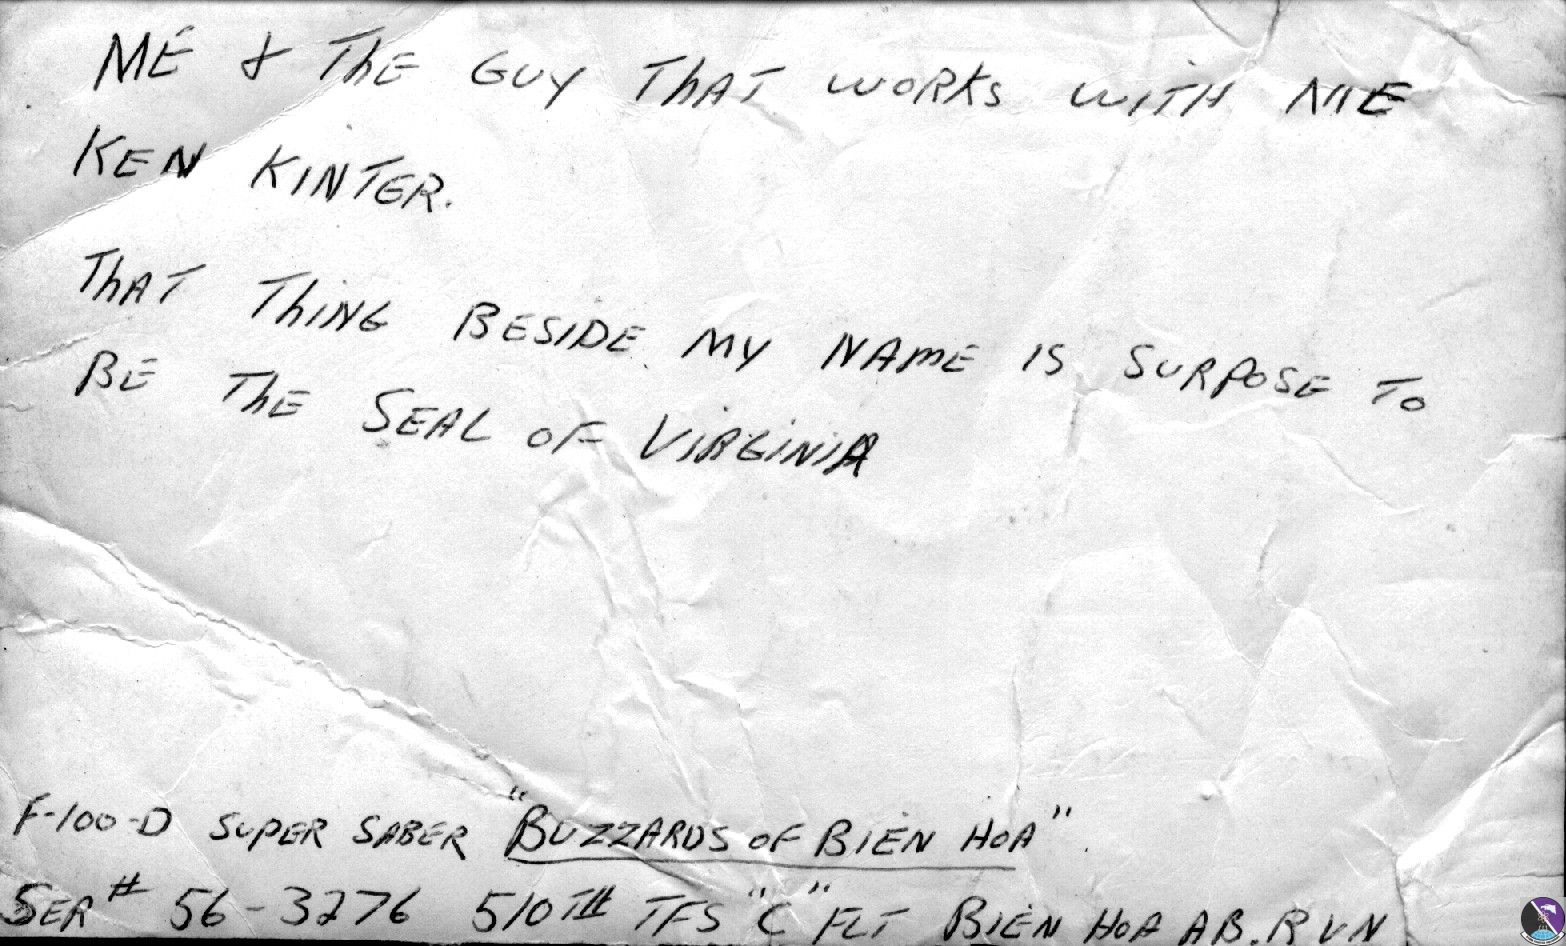 ME & THE GUY THAT WORKS WITH ME
KEN KINTER.
THAT THING BESIDE MY NAME IS SURPOSE TO
BE THE SEAL OF VIRGINIA
F-100-D SUPER SABER "BUZZARDS OF BIEN HOA".
SER # 56-3276 510TH TFS "C" FLT BIEN HOA AB. RVN